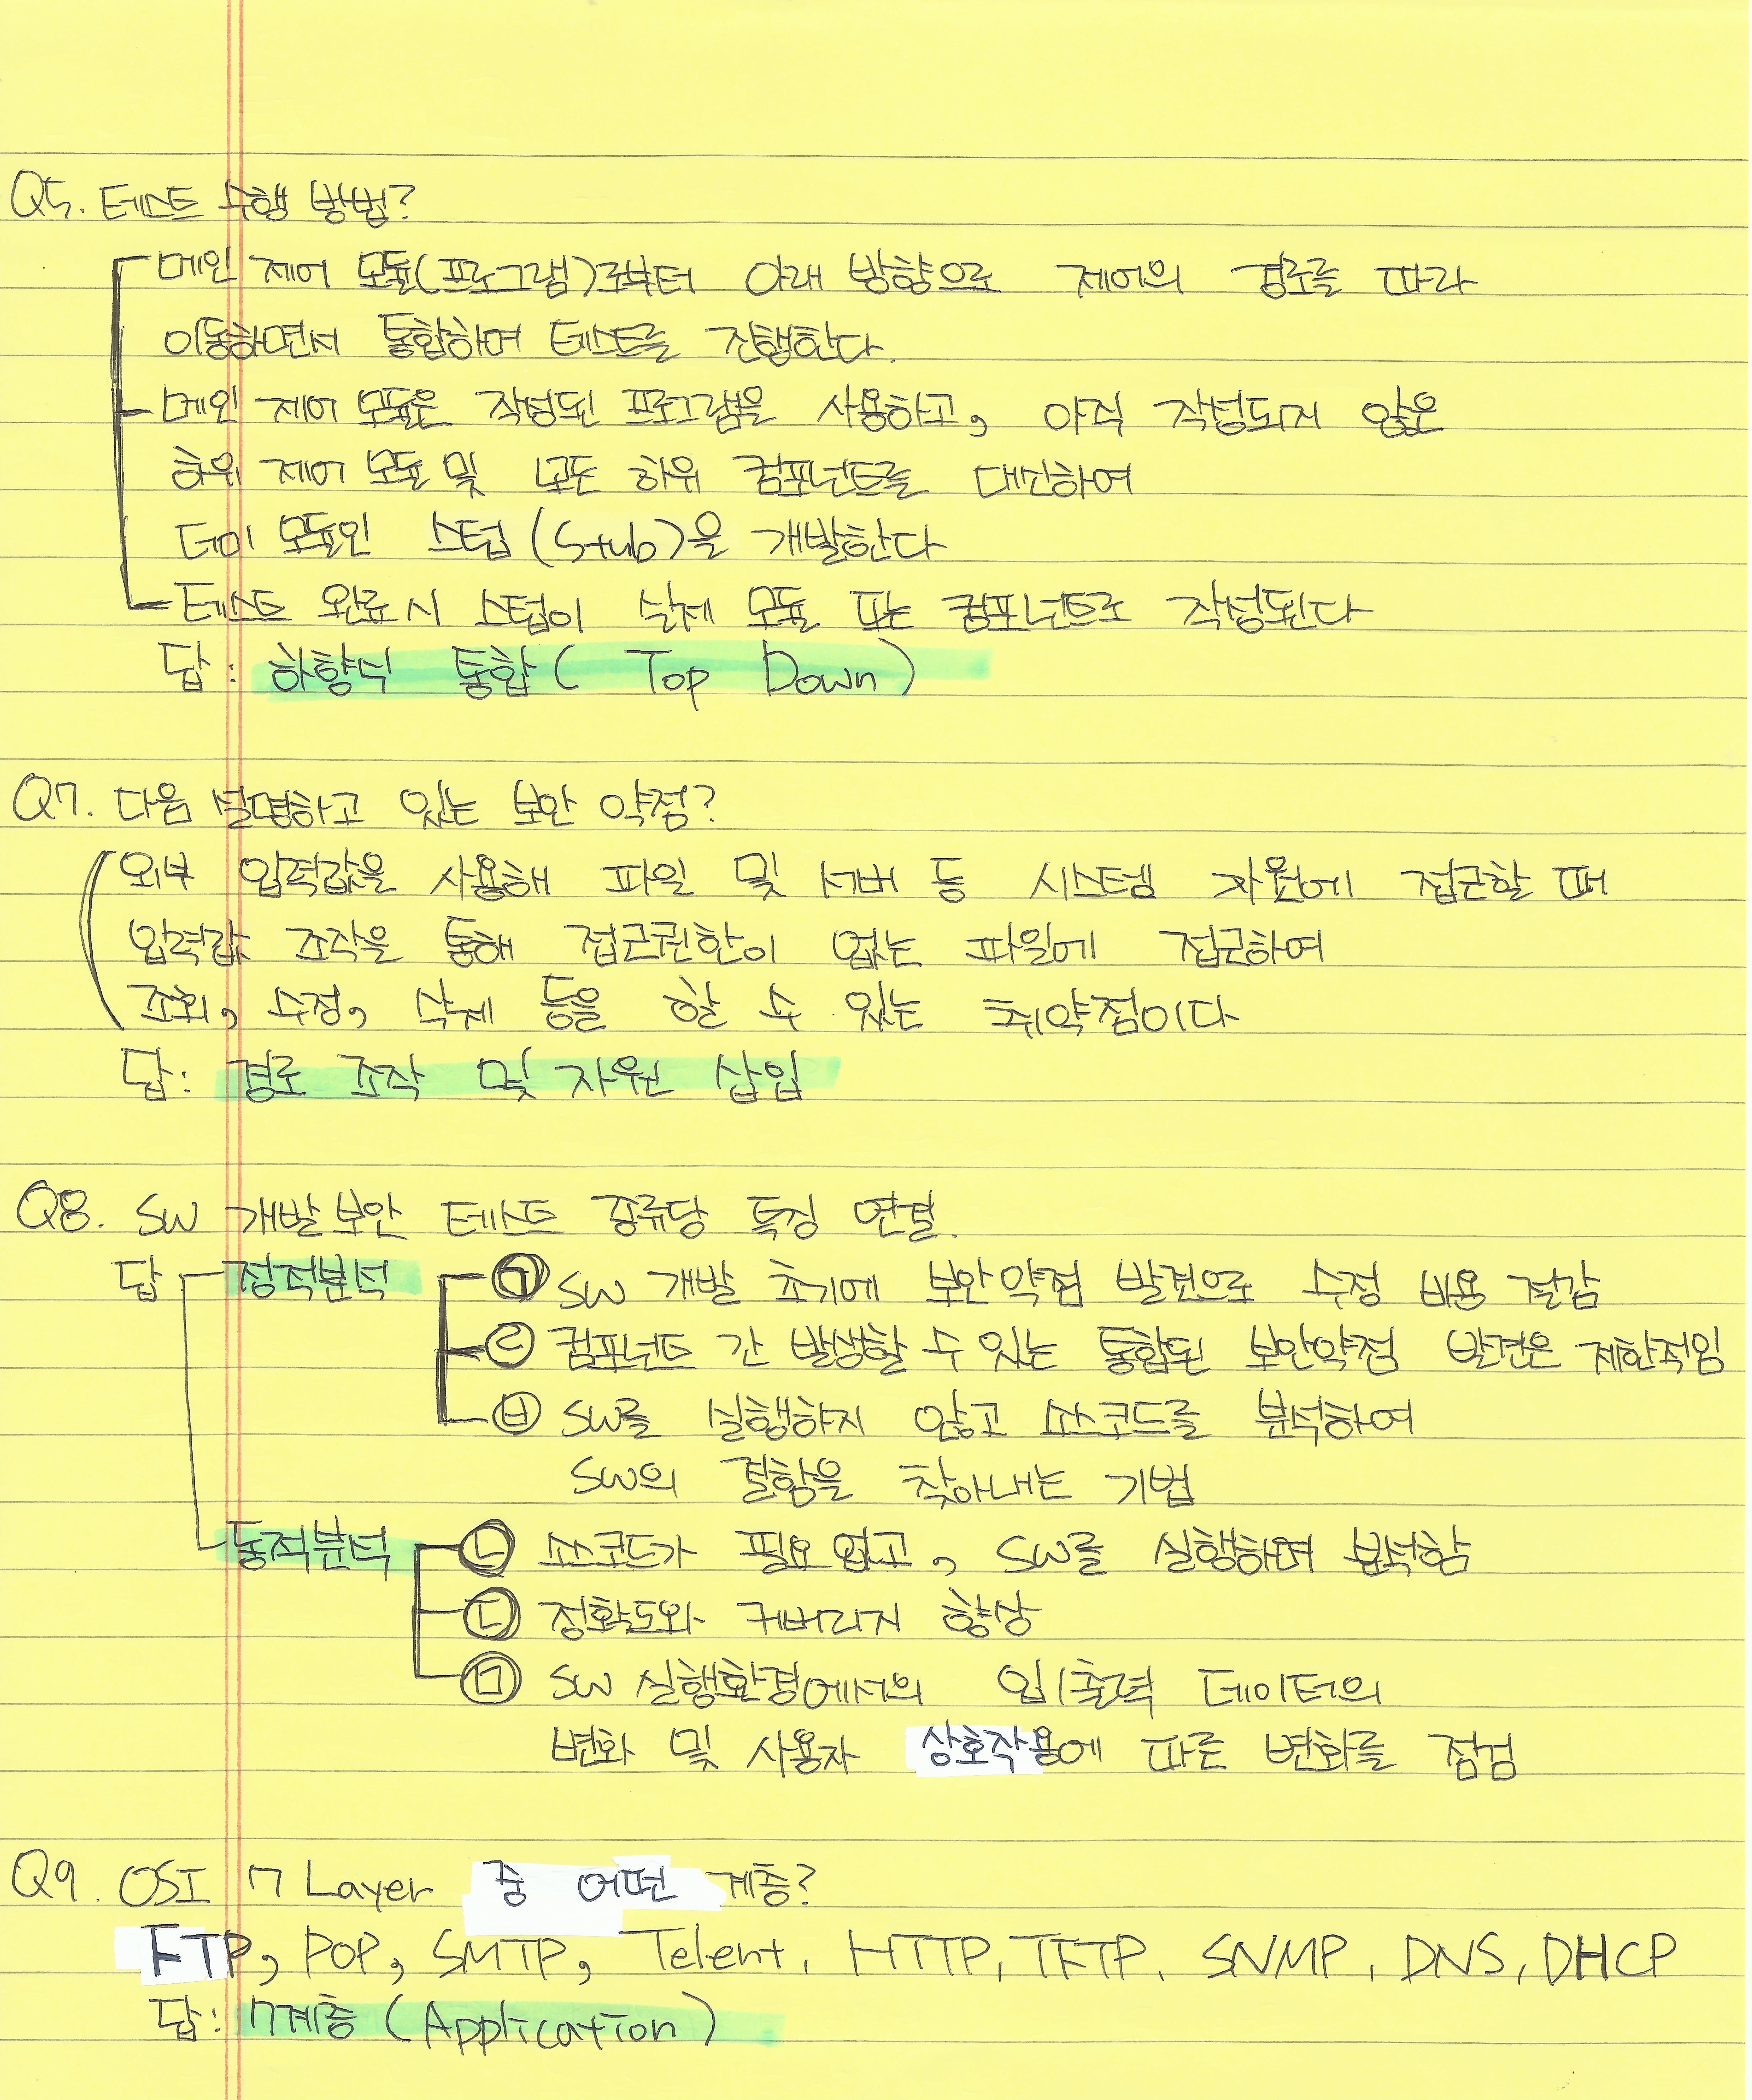 Q5. 테스트 수행 방법?
메인 제어 모듈(프로그램)로부터 아래 방향으로 제어의 경로를 따라
이동하면서 통합하며 테스트를 진행한다.
메인 제어 모듈은 작성된 프로그램을 사용하고, 아직 작성되지 않은
하위 제어 모듈 및 모든 하위 컴포넌트를 대신하여
더미 모듈인 스텁(Stub)을 개발한다
테스트 완료 시 스텁이 실제 모듈 또는 컴포넌트로 작성된다
답: 하향식 통합( Top Down)
Q7. 다음 설명하고 있는 보안 약점?
외부 입력값을 사용해 파일 및 서버 등 시스템 자원에 접근할 때
입력값 조작을 통해 접근권한이 없는 파일에 접근하여
조회, 수정, 삭제 등을 할 수 있는 취약점이다
답: 경로 조작 및 자원 삽입
Q8. SW 개발보안 테스트 종류당 특징 연결.
답 정적분석 ㉠ SW 개발 초기에 보안약점 발견으로 수정 비용 절감
㉣ 컴포넌트 간 발생할 수 있는 통합된 보안약점 발견은 제한적임
㉥ SW를 실행하지 않고 소스코드를 분석하여
SW의 결함을 찾아내는 기법
동적분석 ㉡ 소스코드가 필요 없고, SW를 실행하며 분석함
㉢ 정확도와 커버리지 향상
㉤ SW 실행환경에서의 입/출력 데이터의
변화 및 사용자 상호작용에 따른 변화를 점검
Q9. OSI 7 Layer 중 어떤 계층?
FTP, POP, SMTP, Telent, HTTP, TFTP, SNMP, DNS, DHCP
답: 7계층 (Application)